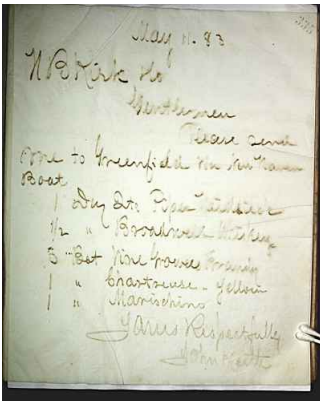 May 11. 83
H B Kirk & Co
Gentlemen
Please send
me to Greenfield via New Haven
Boat
1 Doz Bots Piper Heidsieck
1/2 " Broadwell Whiskey
5 " Bot Vine Growers Brandy
1 " Chartreuse - Yellow
1 " Marischino
Yours Respectfully
John Keith